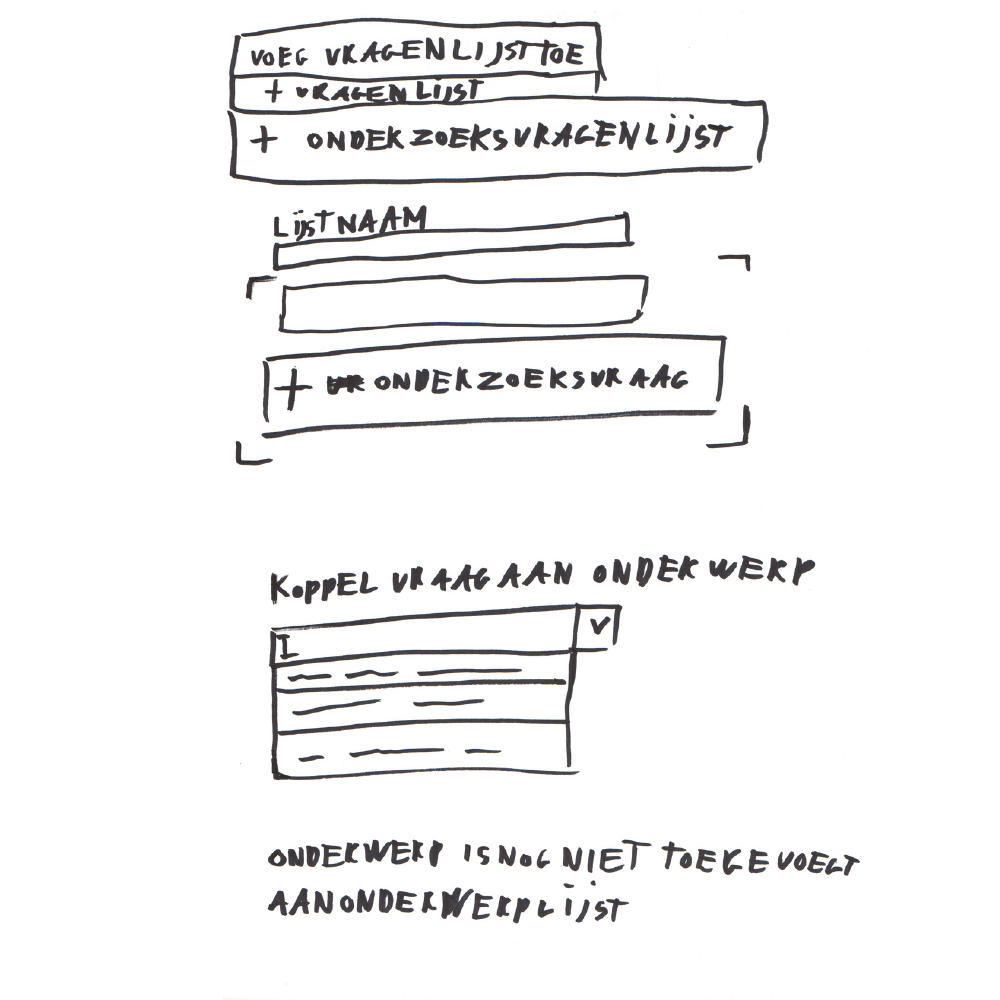 VOEG VRAGENLIJST TOE
+ VRAGENLIJST
+ ONDERZOEKSVRAGENLIJST
LIJSTNAAM
+ ONDERZOEKSVRAAG
KOPPEL VRAAG AAN ONDERWERP
V
I
ONDERWERP IS NOG NIET TOEGEVOEGT
AAN ONDERWERPLIJST